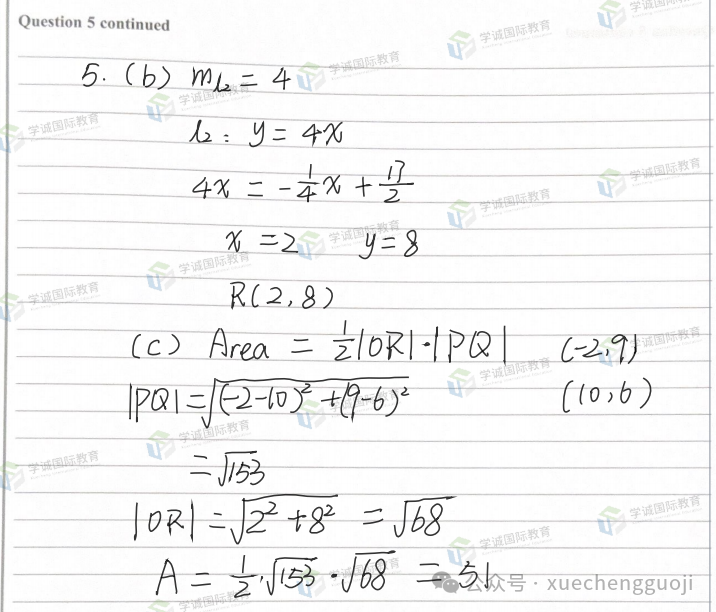 Question 5 continued
5. (b) m_{l_2} = 4
l_2: y = 4x
4x = -\frac{1}{4}x + \frac{17}{2}
x = 2 y = 8
R(2, 8)
(c) Area = \frac{1}{2}|OR|·|PQ| (-2,9)
|PQ| = \sqrt{(-2-10)^2 + (9-6)^2} (10,6)
= \sqrt{153}
|OR| = \sqrt{2^2 + 8^2} = \sqrt{68}
A = \frac{1}{2}·\sqrt{153}·\sqrt{68} = 51
公众号 · xuechengguoji
学诚国际教育